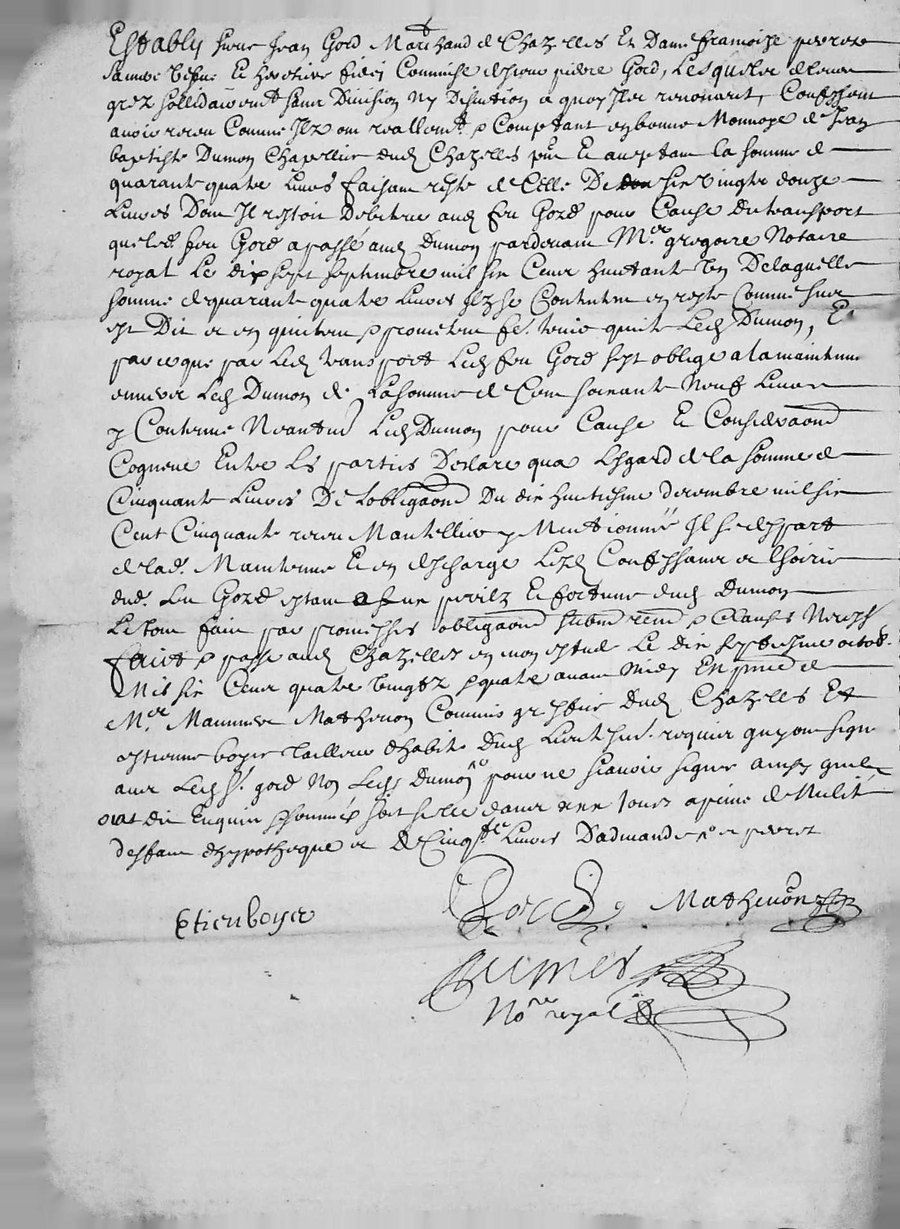 Establÿ sieur Jean Gord Marchand de Chazelles Et Dame francoize perrose
sa mere vefue Et heretiere fidei Commise de sieur pierre Gord, Lesquelz de leur
grez sollidairement sans Division Nÿ Discution a quoÿ Ilz renoncent, Confessent
auoir receu Comme Ilz ont reallemt & Comptant en bonne Monnoye de Jean
baptiste Dumon Chapellier dud Chazelles pnt Et acceptant la somme de
quarante quatre Liures faisant reste de Celle De six vingtz douze
Liures Dont Il restoit Debiteur aud feu Gord pour Cause Du transport
que led. feu Gord a passé aud Dumon pardeuant Mre gregoire Notaire
royal Le dix sept septembre mil six Cens huictante Delaquelle
somme de quarante quatre Liures Ilz se Contentent en reste Comme sus
est Dit et en quittent & promettent fe. tenir quitte Led Dumon, Et
parceque par Led transport Led feu Gord sest obligé a la maintenue
enuers Led Dumon de La somme de Cent soixante Neuf Liures
y Contenue Led Dumon pour Cause Et Consideraõn
Cogneue Entre Les parties Declare qua Lesgard de la somme de
Cinquante Liures De Lobligaõn Du dix huictiesme decembre mil six
Cent Cinquante receu Mantellier y Mentionnée Il se despart
de lad. Maintenue Et en descharge Lesd Confessants et Lhoirie
dud. feu Gord estant a ses perilz Et fortune dud Dumon
Le tout fait par promesses obligaõns renõns & Clauses
faict & passé aud Chazelles en mon estude Le dix septiesme octob.
Mil six Cens quatre vingtz & quatre auant midÿ En pnce de
Mre Mathevon Commis greffier Dud Chazelles Et
estienne boyer tailleur dhabitz Dud Lieu requis quÿ ont signé
auec Led sr. gord Non Led Dumon pour ne scauoir signer
ont dit Enquis & sommés soit scellé dans Jours a peine de Nulité
deffaut dhypotheque et De Cinqte Liures Dadmande
Etien boyer
Gord Mathevon
Nore royal